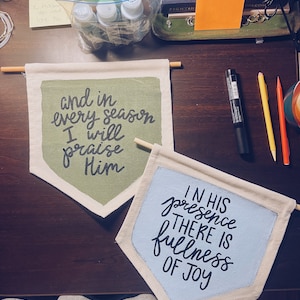 and in
every season
I will
praise
Him
IN HIS
presence
THERE IS
fullness
OF JOY